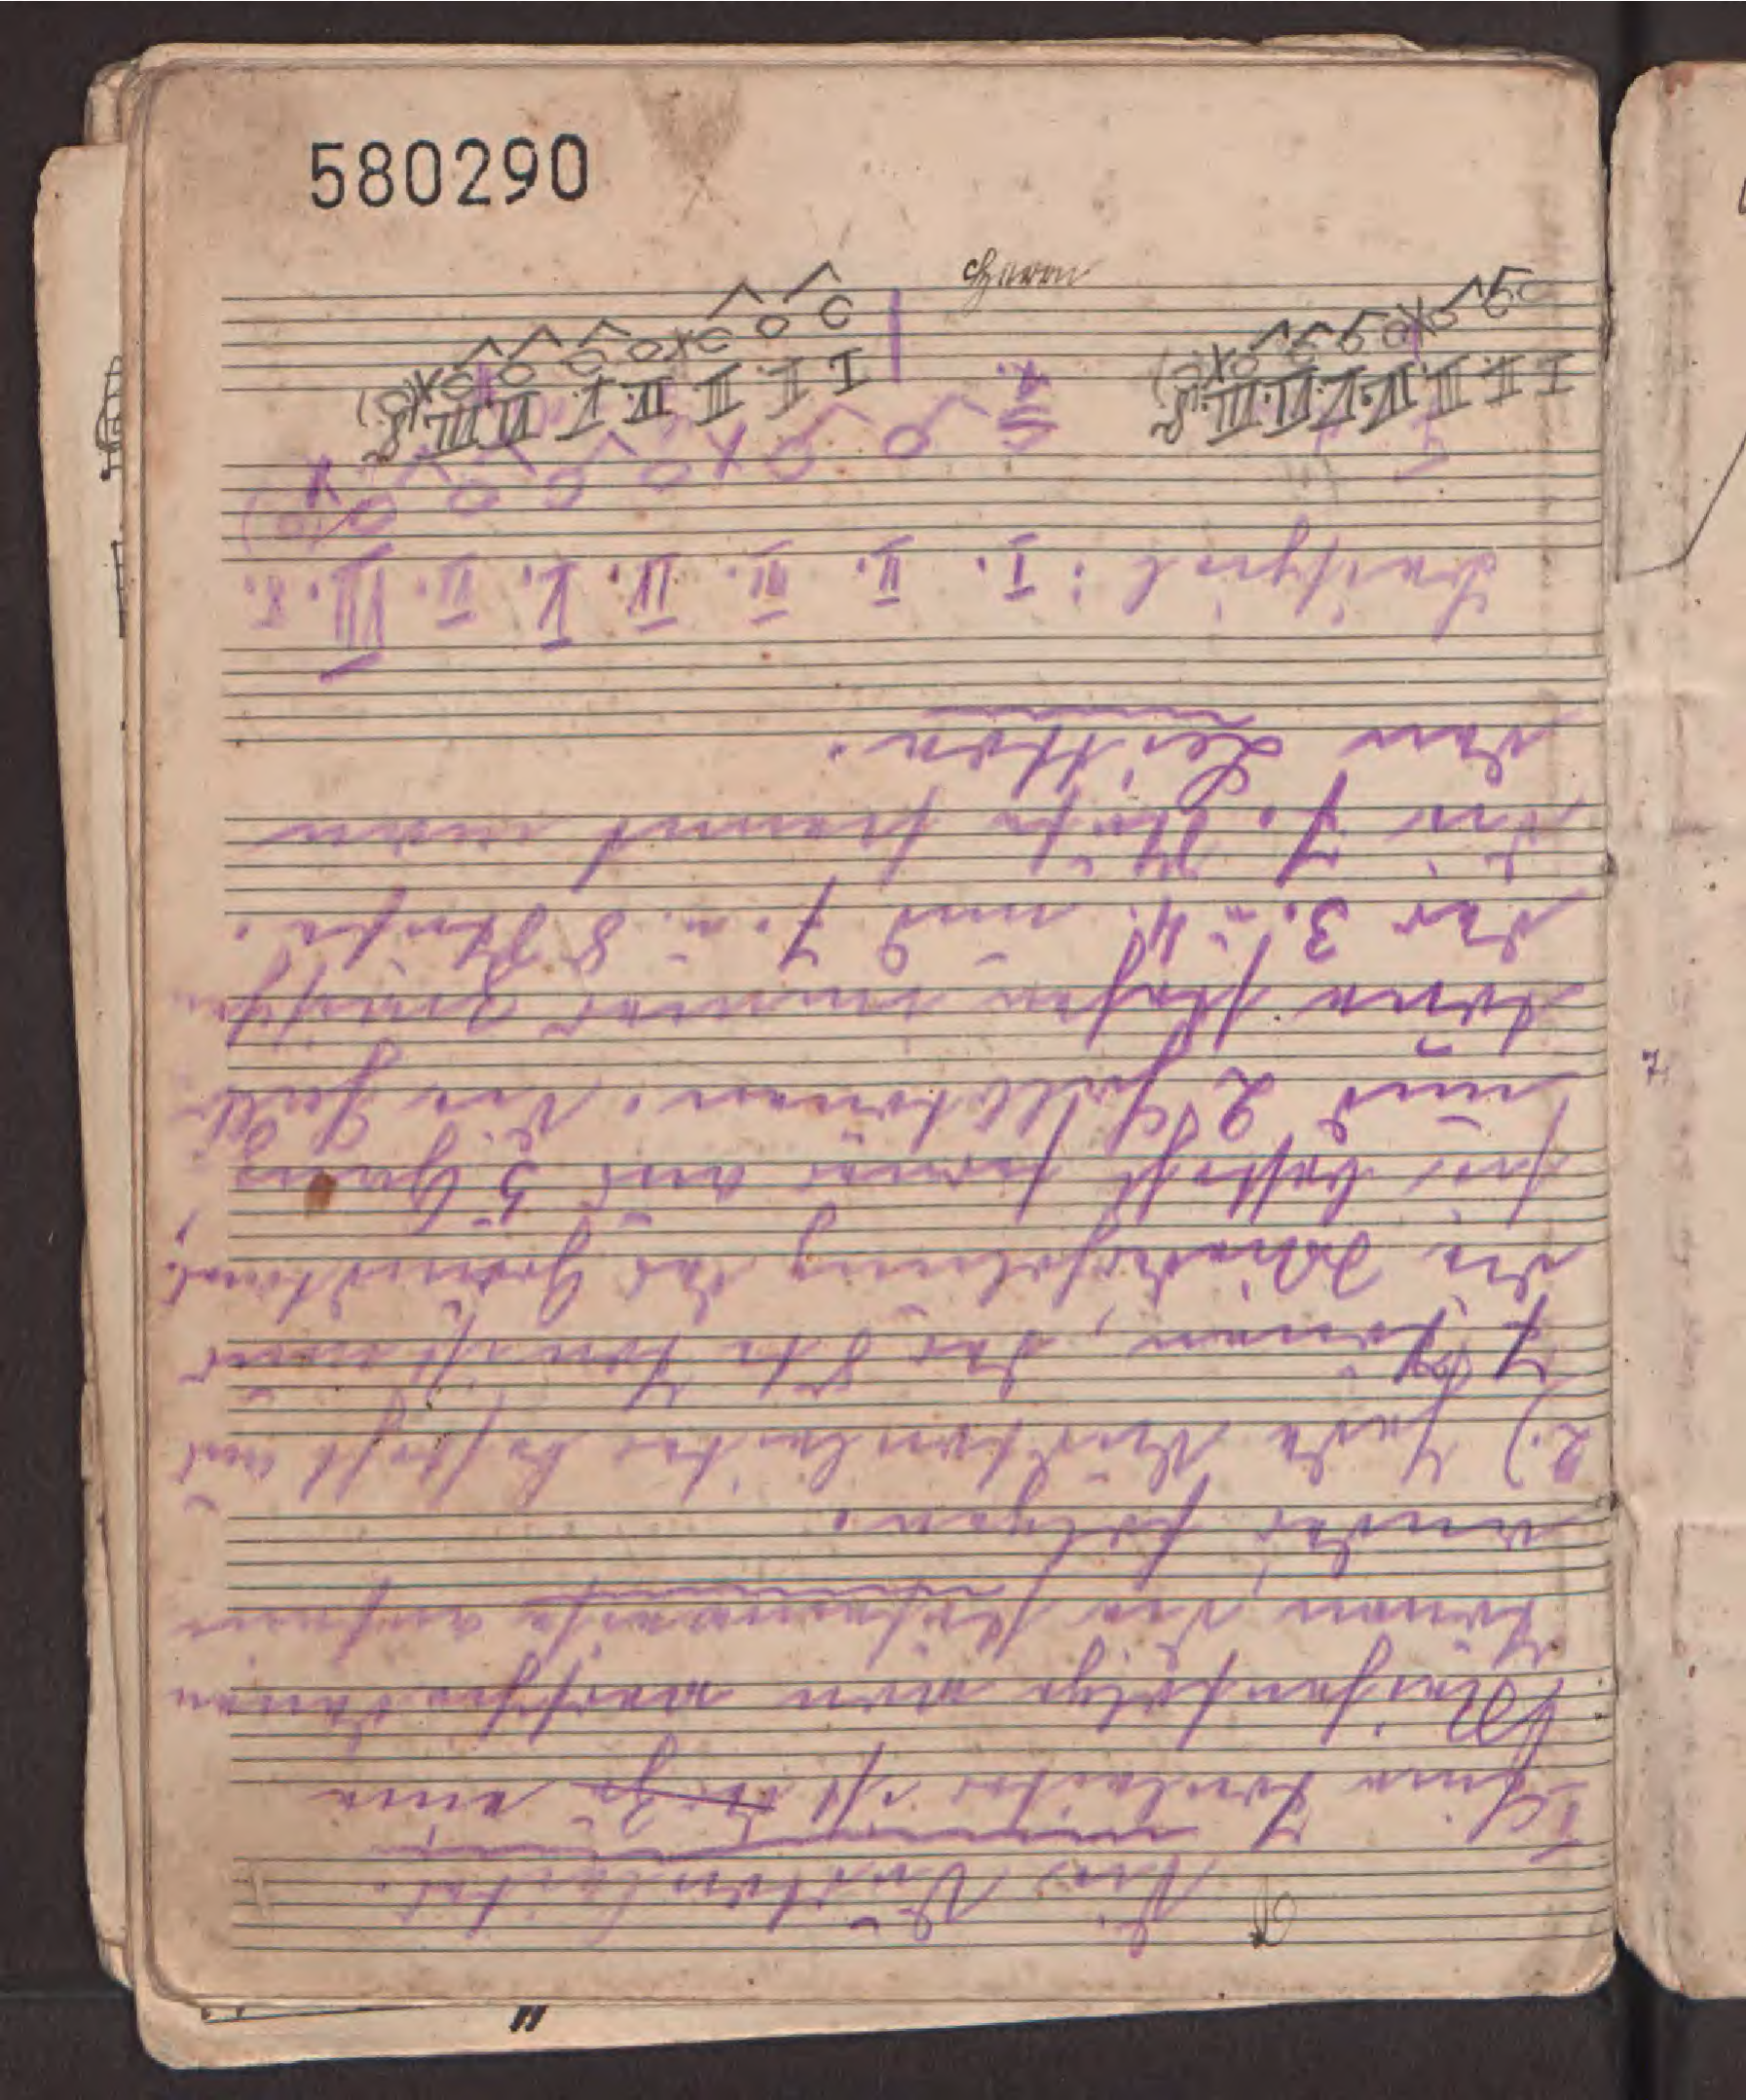 580290
Die Durtonleiter.
I Eine Tonleiter ist eine
Reihenfolge von verschiedenen
Tönen, die stufenweise aufein-
ander folgen.
2.) Jede Durtonleiter besteht aus
7 Tönen, der 8te Ton ist nur
die Wiederholung des Grundtones,
sie besteht ferner aus 5 Ganz
und 2 Halbtönen. Die Halb-
töne stehen immer zwischen
der 3. u. 4. und 7. u. 8 Stufe.
Die 7. Stufe nennt man
den Leitton.
Beispiel: I. II. III. IV. V. VI. VII. 8.
I II. III. IV. V. VI VII. 8.
I II. III. IV. V. VI. VII. 8.